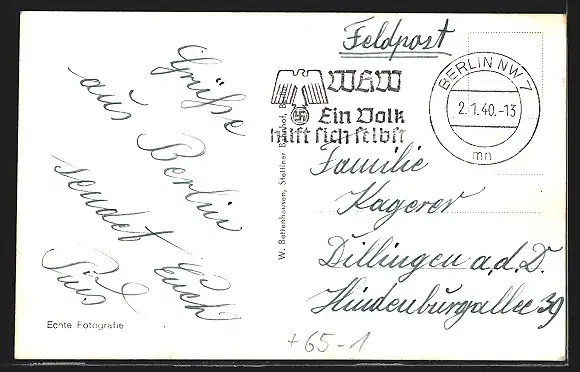 Grüße
aus Berlin
sendet Euch
Pius
Echte Fotografie
W. Bettenhausen, Stettiner Bahnhof, Berlin
Feldpost
WHW
Ein Volk
hilft sich selbst
BERLIN NW 7
2.1.40.-13
mn
Familie
Kagerer
Dillingen a.d.D.
Hindenburgallee 39
+65-1